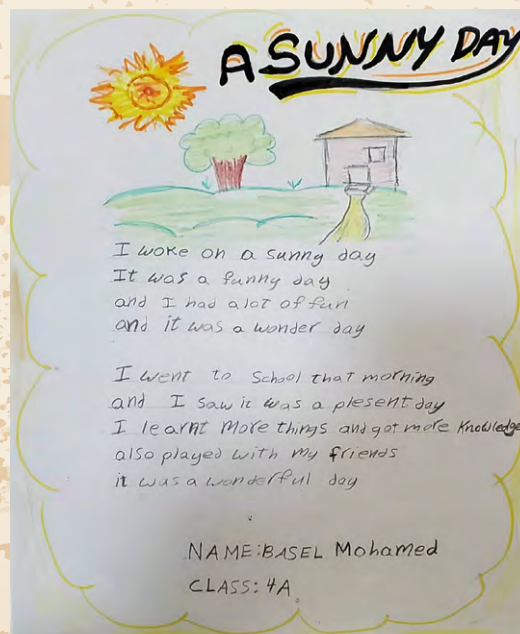 A SUNNY DAY
I woke on a sunny day
It was a funny day
and I had alot of fun
and it was a wonder day
I went to School that morning
and I saw it was a plesent day
I learnt More things and got more Knowledge
also played with my friends
it was a wonderful day
NAME: BASEL Mohamed
CLASS: 4A